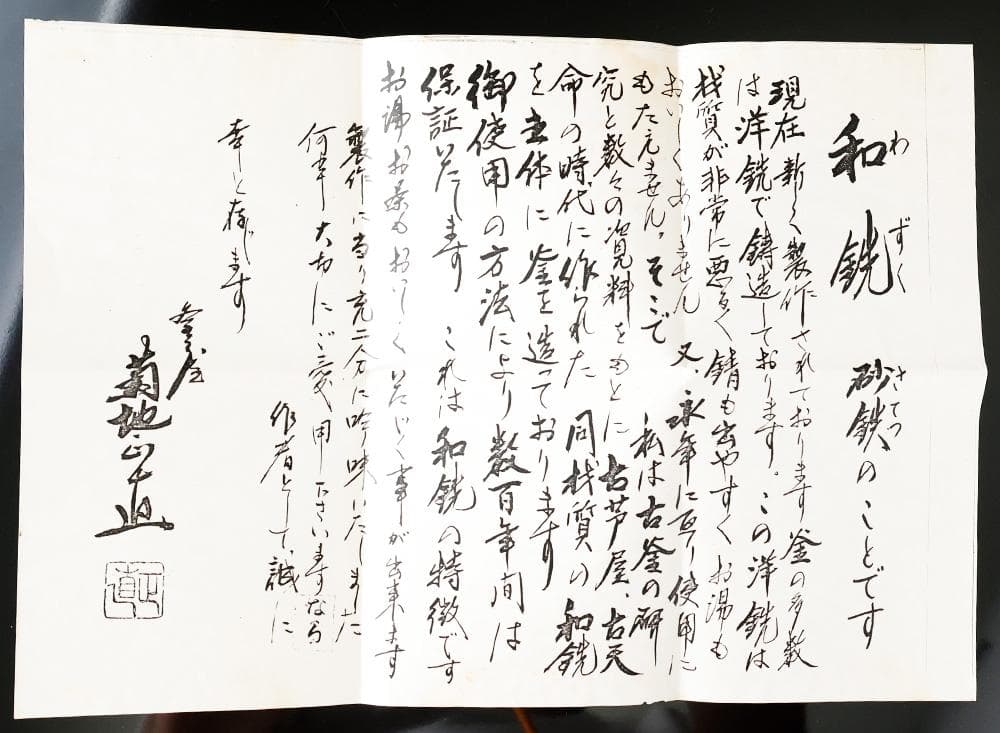 和銑 砂鉄のことです
わずく さてつ
現在新しく製作されております釜の多数
は洋銑で鋳造しております。この洋銑は
材質が非常に悪るく錆も出やすくお湯も
おいしくありません 又、永年に亘り使用に
もたえません。そこで 私は古釜の研
究と数々の資料をもとに古芦屋、古天
命の時代に作られた同材質の和銑
を主体に釜を造っております
御使用の方法により数百年間は
保証いたします これは和銑の特徴です
お湯お茶もおいしくいただく事が出来ます
製作に当り充二分に吟味いたしました
何卒大切にご愛用下さいますなら
作者として、誠に
幸いと存じます
釜屋
菊地正直
正直